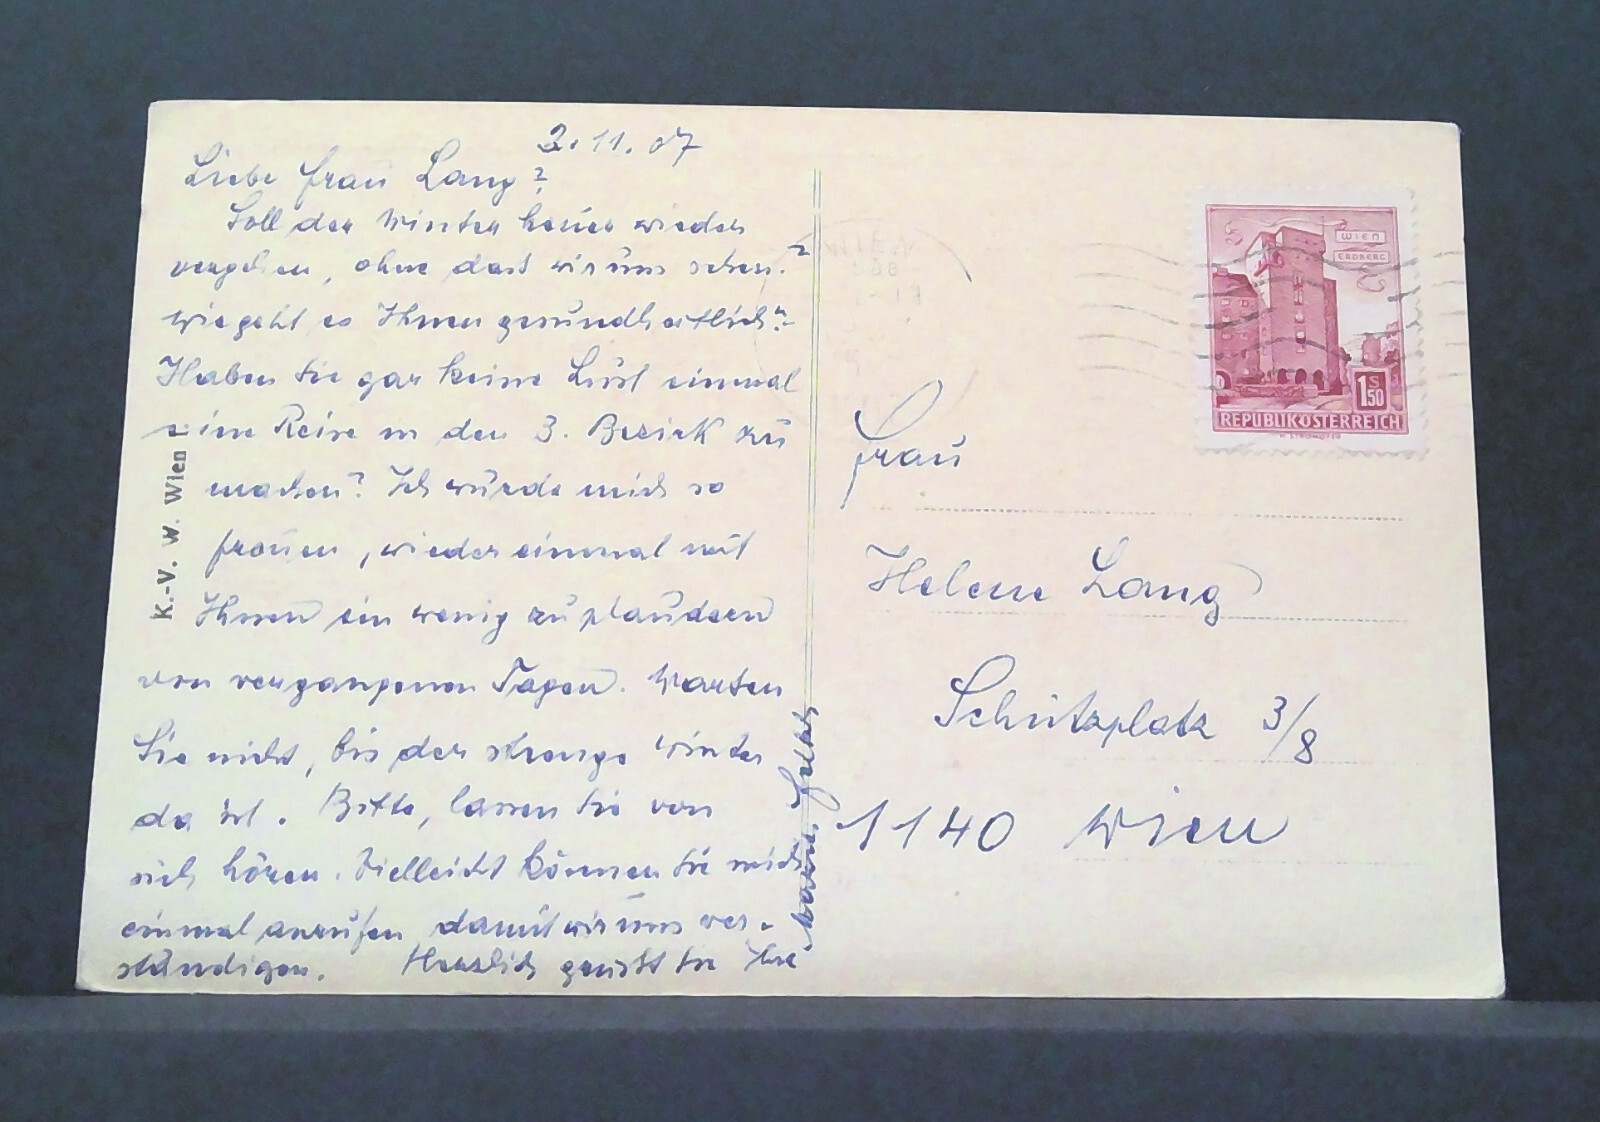 2.11.07
Liebe Frau Lang?
Soll der Winter heuer wieder
vergehen, ohne dass wir uns sehen?
wie geht es Ihnen gesundheitlich?
Haben Sie gar keine Lust einmal
eine Reise in den 3. Bezirk zu
machen? Ich würde mich so
freuen, wieder einmal mit
Ihnen ein wenig zu plaudern
von vergangenen Tagen. Warten
Sie nicht, bis der strenge Winter
da ist. Bitte, lassen Sie von
sich hören. Vielleicht können Sie mich
einmal anrufen damit wir uns ver-
ständigen. Herzlich grüsst Sie Ihre
K.-V. W. Wien
WIEN
WIEN
ERDBERG
1 S 50
REPUBLIK ÖSTERREICH
Frau
Helene Lang
Schützplatz 3/8
1140 Wien